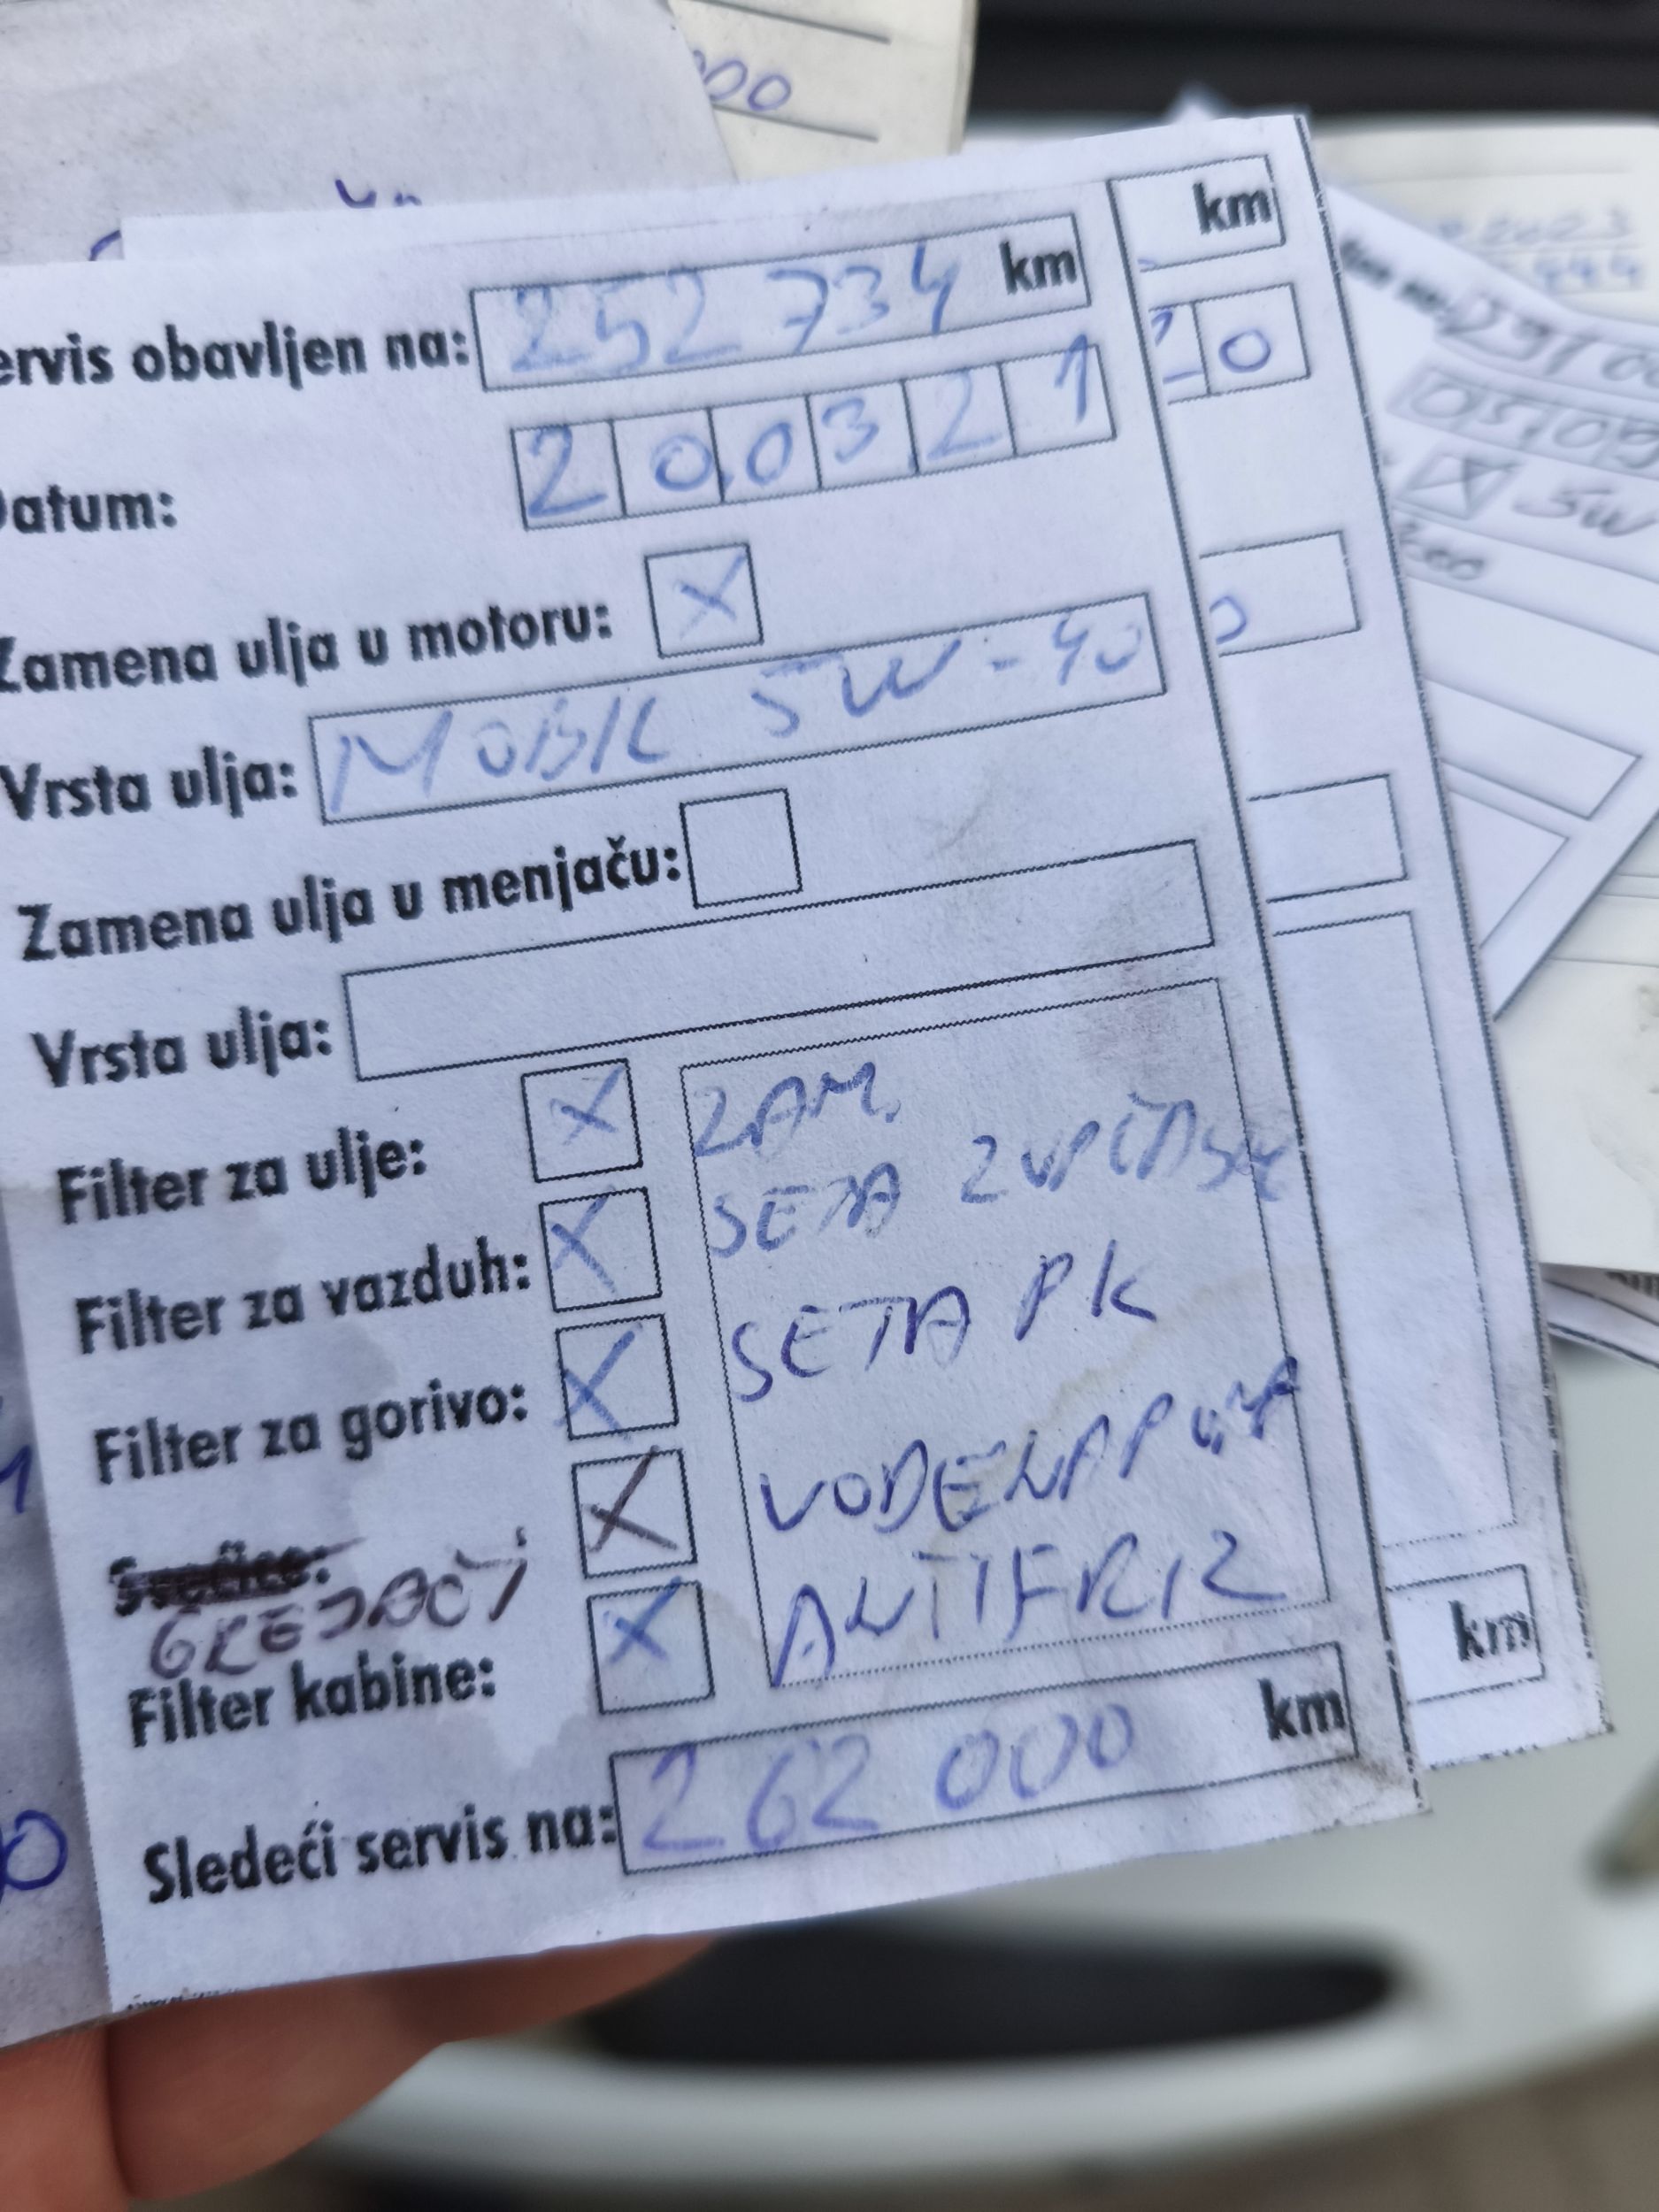 00
km
20
ervis obavljen na: 252 734 km
Datum: 20.03.21
Zamena ulja u motoru: X
Vrsta ulja: MOBIL 5W-40
Zamena ulja u menjaču:
Vrsta ulja:
Filter za ulje: X
Filter za vazduh: X
Filter za gorivo: X
GREJAČI X
Filter kabine: X
ZAM.
SETA ZUPČASK
SETA PK
VODENA PUMPA
ANTIFRIZ
Sledeći servis na: 262 000 km
km
5W